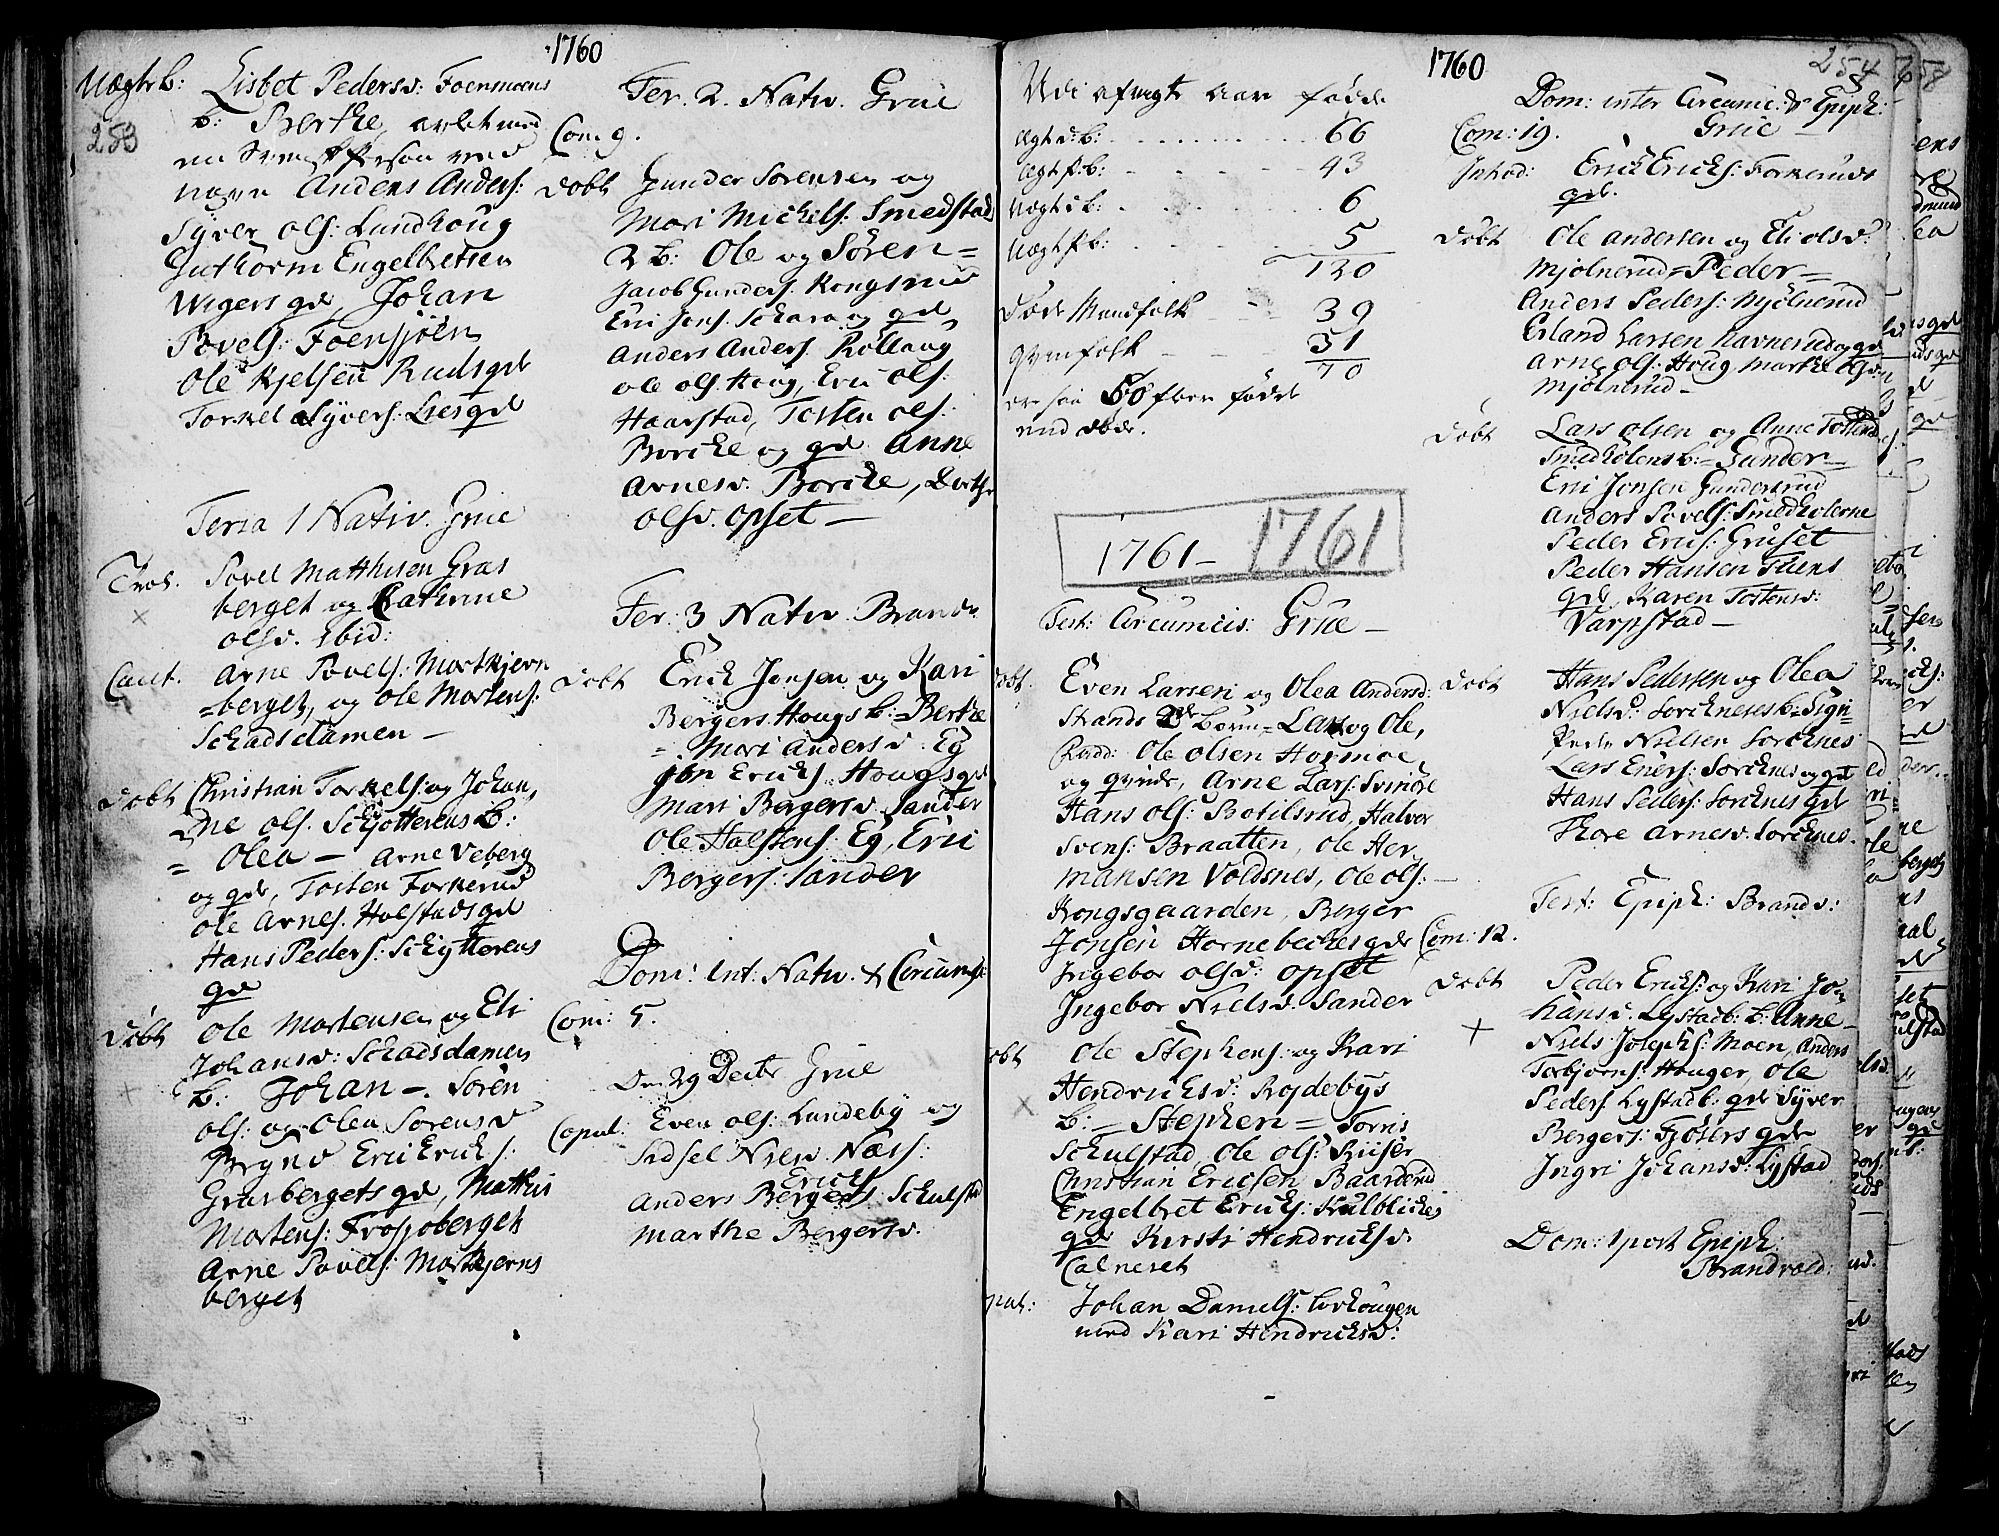 1760
Uægte b: Lisbet Pedersd: Foenmoens
253
b: Berthe, avlet med
en Svensk Person ved
navn Anders Anders:
Syver Ols: Lundhoug
Guthorm Engelbretsen
Wigers gd, Johan
Povels: Foensjöen
Ole Kjelsen Rudsgd
Torkel Syvers: Liesgd
Feria 1 Nativ. Grue
Trol. Povel Matthisen Gras
berget og Cathrine
Olsd. ibid:
Caut. Arne Povels: Mortkjern
=berget, og Ole Mortens:
Schadsdamen —
döbt Christian Torkels og Johan,
ne Ols. Schjötterens B:
= Olea — Arne Veberg
og gd, Tosten Torkerud
Ole Arnes. Holstads gd
Hans Peders: Schytterens
gd
Döbt Ole Mortensen og Eli
Johansd: Schadsdamens
B: Johan —. Sören
Ols: og Olea Sörensd
Brynd Eric Erichs:
Grasbergets gd, Mathis
Mortens: Froysoberget
Arne Povels: Mortkjerns
berget
Fer. 2. Nativ. Grue
Com 9.
döbt Gunder Sörensen og
Mari Michels: Smedstad
2 B: Ole og Sören =
Jacob Gunders. Kongsrud
Eric Jens. Schara og gd
Anders Anders. Rollaug
Ole Ols. Houg, Eric Ols:
Haarstad, Tosten Ols:
Borche og gd Anne
Arnesd. Borche, Dorthe
Olsd. Opset —
Fer: 3 Nativ. Brandv
Döbt Erich Jensen og Kari
Bergers. Hougs b: = Berthe
= Mari Andersd. Eg
Jon Erichs. Hougs gd
Mari Bergersd. Sander
Ole Halstens: Eg, Eric
Bergers: Sander
Dom: Int: Nativ. & Circumcis:
Com: 5.
Den 29 Decbr Grue
Copul: Even Ols: Lundeby og
Sidsel Niersd. Næss:
Erichs
Anders Bergers. Schulstad
Marthe Bergersd.
1760
254
Udi afvigte Aar födde
ægte d:b: . . . . 66
ægte p:b: . . . . 43
Uægte d b: . . . . 6
Uægte p b: . . . . 5
120
döde Mandfolk — 39
Qvinfolk — 31
70
er saa 50 fleer födde
end döde.
1761 — 1761
Fest: Circumcis: Grue —
döbt. Even Larsen og Olea Andersd:
Strands 2de Börn = Lars og Ole,
Fadd: Ole Olsen Hormoe,
og qvinde, Arne Lars: Svinöie
Hans Ols: Botilsrud, Halvor
Svens: Braatten, Ole Her,
mansen Voldsnes, Ole Ols: —
Kongsgaarden, Berger
Jonsen Hornebeches gd
Ingebor Olsd: Opset
Ingebor Nielsd. Sander
döbt Ole Stephens: og Kari
Hendrichsd: Rojdebys
B: = Stephen = Tornis
Schulstad, Ole Ols: Riiser
Christian Ericsen Baarderud
Engelbret Erichs: Kulbliches
gd Kirsti Hendrichsd
Calneset
Copul: Johan Daniels: Corhougen
med Kari Hendrichsd:
Dom: inter Circumc: & Epiph:
Com: 19. Grue —
Introd: Erich Erichs: Torkeruds
gd.
Döbt Ole Andersen og Eli Olsd:
Mjölnerud = Peder =
Anders Peders: Mjölnerud
Erland Larsen Ravnerud og gd
Arne Ols: Houg, Marthe
Mjölnerud —
Döbt Lars Olsen og Anne Tostensd
Smedholens b: = Gunder —
Eric Jonsen Gundersrud
Anders Povels: Smedholerne
Peder Erics: Gruset
Peder Hansen Tuens
gd, Karen Tostensd:
Varpstad —
Döbt Hans Pedersen og Olea
Nielsd: Sorchnesesb = Sign=
Peder Nielsen Sorchnes
Lars Eners: Sorchnes og gd
Hans Peders: Sorchnes gd
Thore Arnesd: Sorchnes.
Fest: Epiph: Brandv:
Com: 12.
Döbt Peder Erichs: og Kari Jo,
hansd. Lystadb: b: Anne —
Niels Josephs: Moen, Anders
Torbjörns: Houger, Ole
Peders. Lystadb: gd Syver
Bergers: Fjösers gd
Ingri Johansd: Lystad
Dom: 1 post Epiph:
Brandvold: